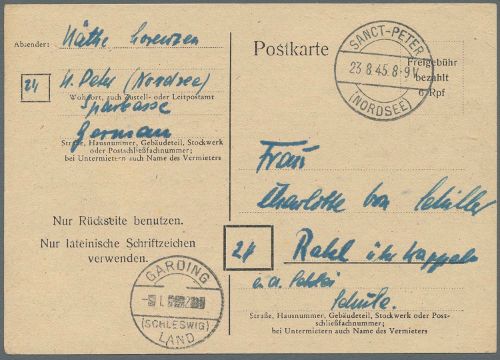 Absender: Käthe Lorenzen
24 St. Peter (Nordsee)
Wohnort, auch Zustell- oder Leitpostamt
Sparkasse
German
Straße, Hausnummer, Gebäudeteil, Stockwerk
oder Postschließfachnummer;
bei Untermietern auch Name des Vermieters
Nur Rückseite benutzen.
Nur lateinische Schriftzeichen
verwenden.
GARDING
(SCHLESWIG)
LAND
Postkarte
SANCT-PETER
23.8.45.8-9V
(NORDSEE)
Freigebühr
bezahlt
6 Rpf
Frau
Charlotte von Schiller
24 über Kappeln
Schule.
Straße, Hausnummer, Gebäudeteil, Stockwerk oder Post-
schließfachnummer;
bei Untermietern auch Name des Vermieters